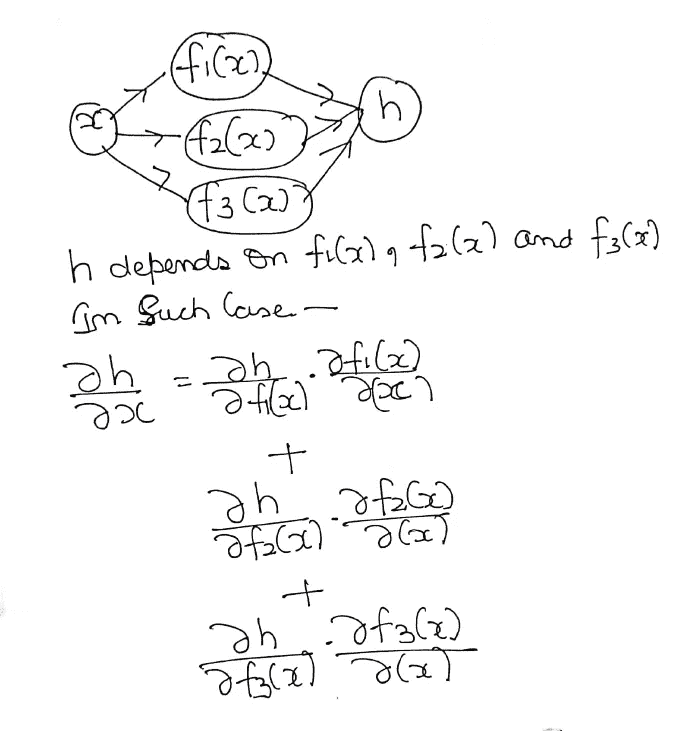 f₁(x)
x
h
f₂(x)
f₃(x)
h depends on f₁(x), f₂(x) and f₃(x)
In Such Case —
∂h/∂x = ∂h/∂f₁(x) · ∂f₁(x)/∂(x)
+
∂h/∂f₂(x) · ∂f₂(x)/∂(x)
+
∂h/∂f₃(x) · ∂f₃(x)/∂(x)